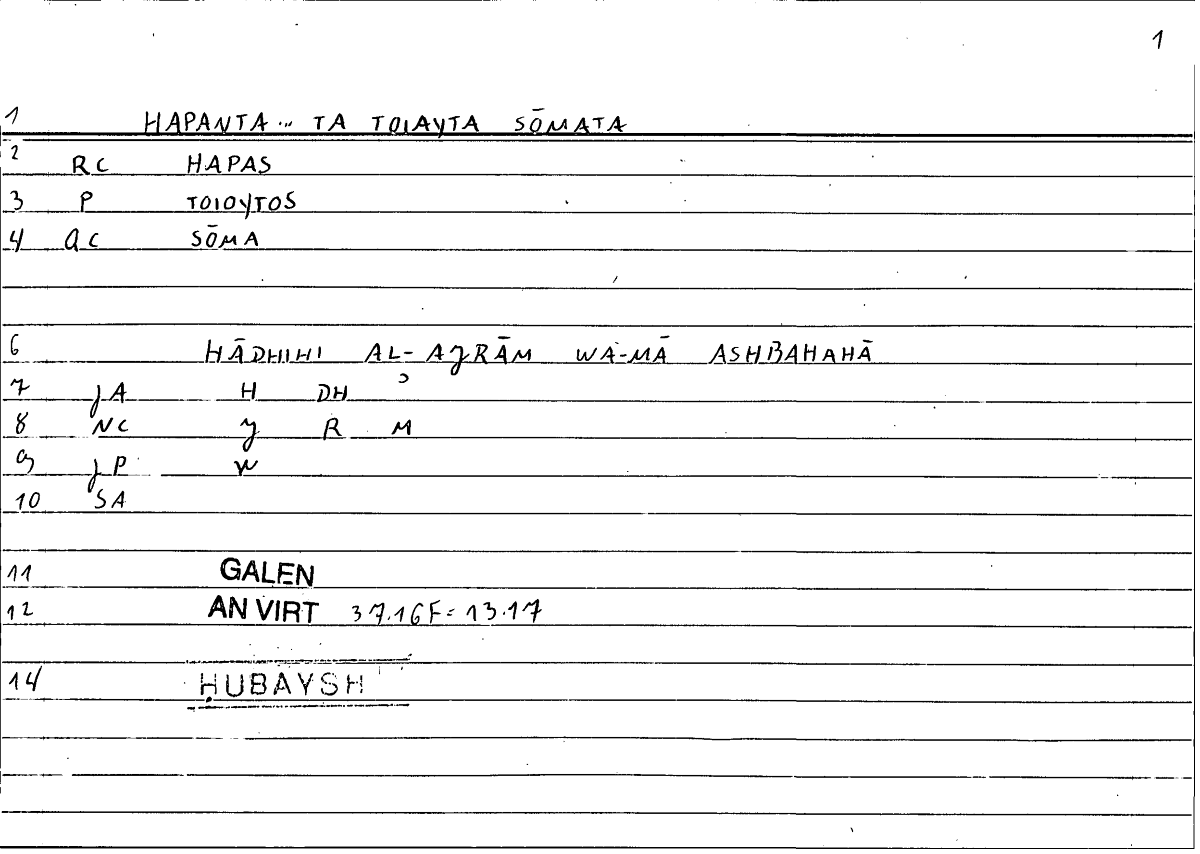 1
1 HAPANTA ... TA TOIAYTA SŌMATA
2 RC HAPAS
3 P TOIOYTOS
4 QC SŌMA
6 HĀDHIHI AL-AJRĀM WA-MĀ ASHBAHAHĀ
7 JA H DH ʾ
8 NC J R M
9 JP W
10 SA
11 GALEN
12 AN VIRT 37.16F = 13.17
14 ḤUBAYSH